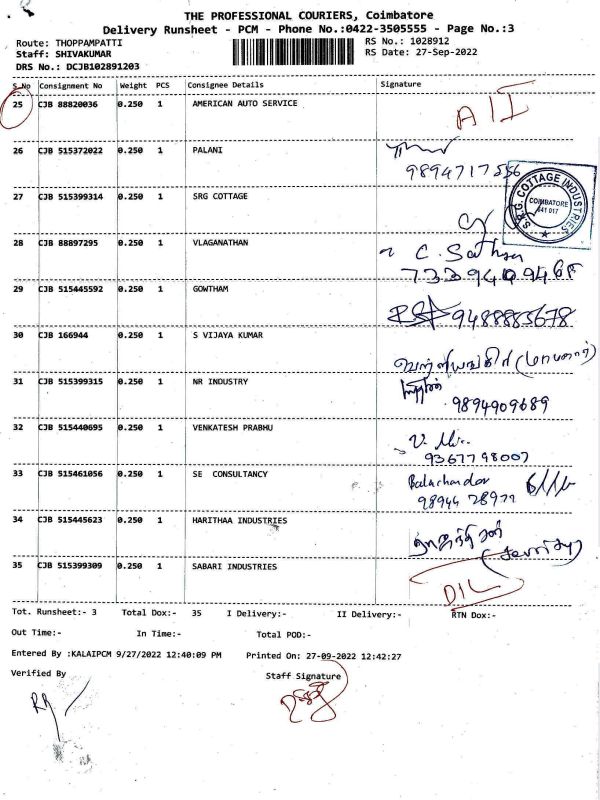 THE PROFESSIONAL COURIERS, Coimbatore
Delivery Runsheet - PCM - Phone No.:0422-3505555 - Page No.:3
Route: THOPPAMPATTI RS No.: 1028912
Staff: SHIVAKUMAR RS Date: 27-Sep-2022
DRS No.: DCJB102891203
S.No Consignment No Weight PCS Consignee Details Signature
25 CJB 88820036 0.250 1 AMERICAN AUTO SERVICE
26 CJB 515372022 0.250 1 PALANI
9894717556
27 CJB 515399314 0.250 1 SRG COTTAGE
S.R.G. COTTAGE INDUSTRIES
COIMBATORE
641 017
28 CJB 88897295 0.250 1 VLAGANATHAN
C. Sathya
29 CJB 515445592 0.250 1 GOWTHAM
9488885678
30 CJB 166944 0.250 1 S VIJAYA KUMAR
31 CJB 515399315 0.250 1 NR INDUSTRY
9894909689
32 CJB 515440695 0.250 1 VENKATESH PRABHU
9367798007
33 CJB 515461056 0.250 1 SE CONSULTANCY
Balachandar
98944 28977
34 CJB 515445623 0.250 1 HARITHAA INDUSTRIES
35 CJB 515399309 0.250 1 SABARI INDUSTRIES
DIL
Tot. Runsheet:- 3 Total Dox:- 35 I Delivery:- II Delivery:- RTN Dox:-
Out Time:- In Time:- Total POD:-
Entered By :KALAIPCM 9/27/2022 12:40:09 PM Printed On: 27-09-2022 12:42:27
Verified By Staff Signature